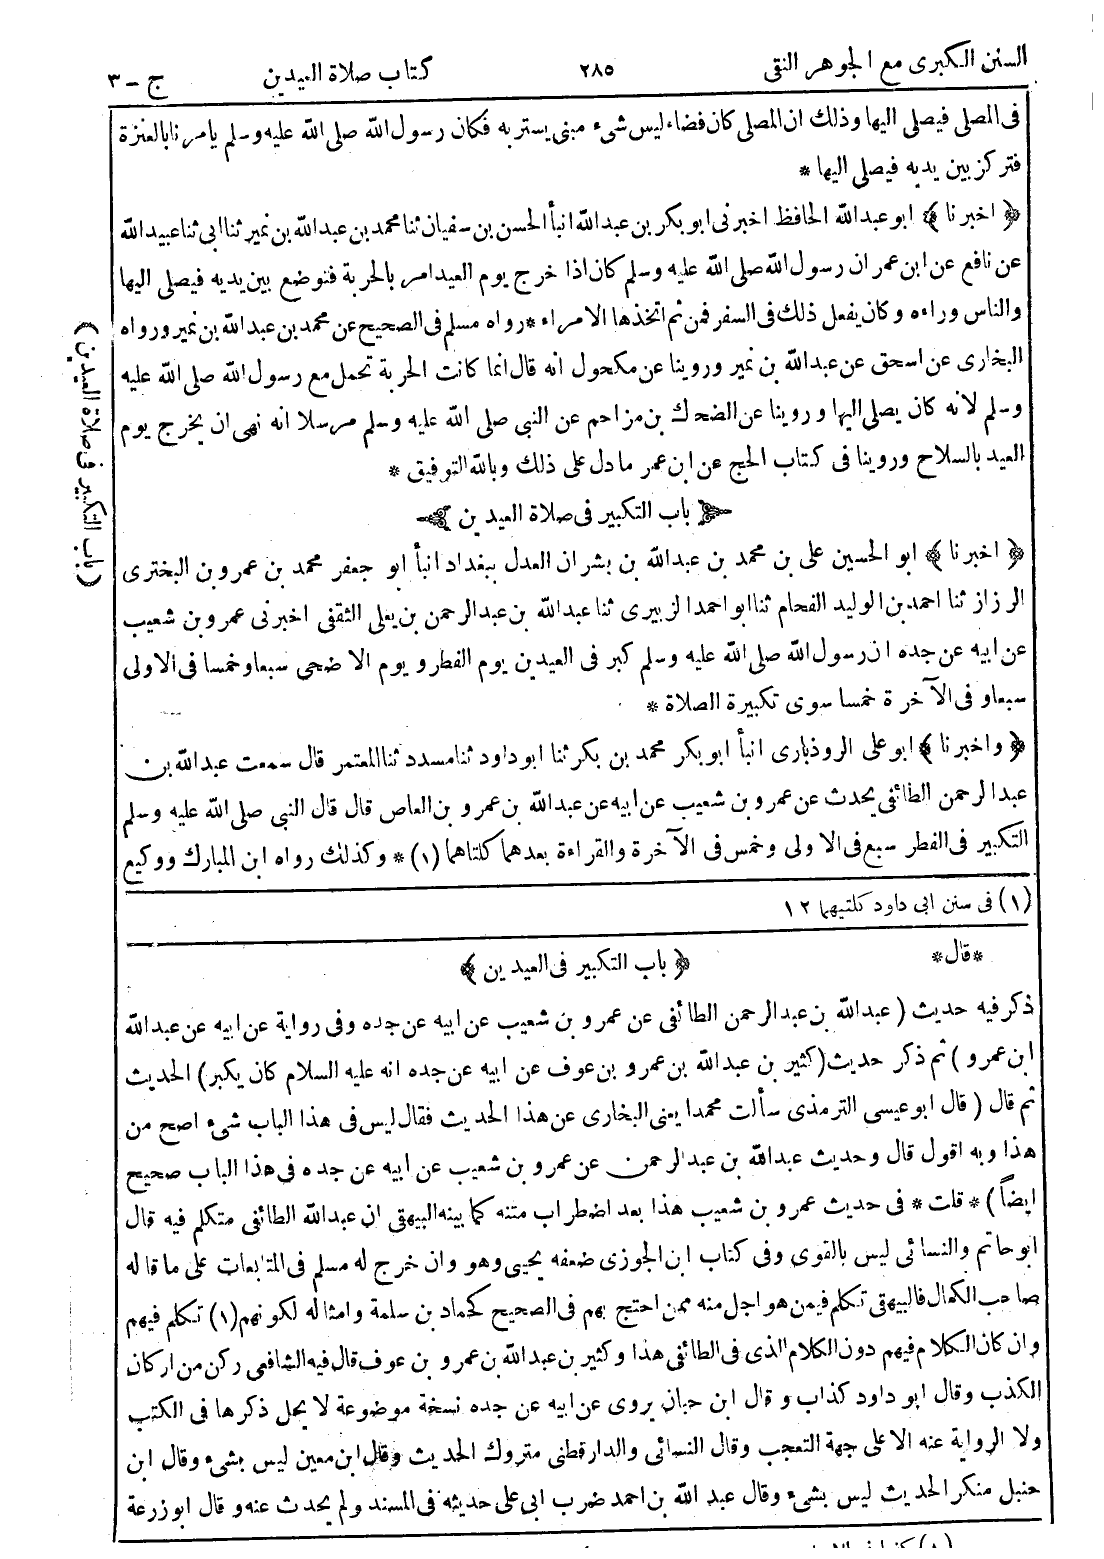 السنن الكبرى مع الجوهر النقى ٢٨٥ كتاب صلاة العيدين ج – ٣
فى المصلى فيصلى اليها وذلك ان المصلى كان فضاء ليس شىء مبنى يستر به فكان رسول الله صلى الله عليه وسلم يامر نا بالعنزة
فتركز بين يديه فيصلى اليها *
﴿ اخبرنا ﴾ ابو عبدالله الحافظ اخبرنى ابو بكر بن عبدالله انبأ الحسن بن سفيان ثنا محمد بن عبدالله بن نمير ثنا ابى ثنا عبيدالله
عن نافع عن ابن عمر ان رسول الله صلى الله عليه وسلم كان اذا خرج يوم العيد امر بالحربة فتوضع بين يديه فيصلى اليها
والناس وراءه وكان يفعل ذلك فى السفر فمن ثم اتخذها الامراء * رواه مسلم فى الصحيح عن محمد بن عبدالله بن نمير ورواه
البخارى عن اسحق عن عبدالله بن نمير وروينا عن مكحول انه قال انما كانت الحربة تحمل مع رسول الله صلى الله عليه
وسلم لانه كان يصلى اليها وروينا عن الضحاك بن مزاحم عن النبى صلى الله عليه وسلم مرسلا انه نهى ان يخرج يوم
العيد بالسلاح وروينا فى كتاب الحج عن ابن عمر ما دل على ذلك وبالله التوفيق *
باب التكبير فى صلاة العيدين
﴿ اخبرنا ﴾ ابو الحسين على بن محمد بن عبدالله بن بشران العدل ببغداد انبأ ابو جعفر محمد بن عمرو بن البخترى
الرزاز ثنا احمد بن الوليد الفحام ثنا ابو احمد الزبيرى ثنا عبدالله بن عبدالرحمن بن يعلى الثقفى اخبرنى عمرو بن شعيب
عن ابيه عن جده ان رسول الله صلى الله عليه وسلم كبر فى العيدين يوم الفطر ويوم الاضحى سبعا وخمسا فى الاولى
سبعا وفى الآخرة خمسا سوى تكبيرة الصلاة *
﴿ واخبرنا ﴾ ابو على الروذبارى انبأ ابو بكر محمد بن بكر ثنا ابو داود ثنا مسدد ثنا المعتمر قال سمعت عبدالله بن
عبدالرحمن الطائفى يحدث عن عمرو بن شعيب عن ابيه عن عبدالله بن عمرو بن العاص قال قال النبى صلى الله عليه وسلم
التكبير فى الفطر سبع فى الاولى وخمس فى الآخرة والقراءة بعدهما كلتاهما (١) * وكذلك رواه ابن المبارك ووكيع
(باب التكبير فى صلاة العيدين)
(١) فى سنن ابى داود كلتيهما ١٢
*قال* ﴿ باب التكبير فى العيدين ﴾
ذكر فيه حديث ( عبدالله بن عبدالرحمن الطائفى عن عمرو بن شعيب عن ابيه عن جده وفى رواية عن ابيه عن عبدالله
ابن عمرو ) ثم ذكر حديث (كثير بن عبدالله بن عمرو بن عوف عن ابيه عن جده انه عليه السلام كان يكبر) الحديث
ثم قال ( قال ابو عيسى الترمذى سألت محمدا يعنى البخارى عن هذا الحديث فقال ليس فى هذا الباب شىء اصح من
هذا وبه اقول قال وحديث عبدالله بن عبدالرحمن عن عمرو بن شعيب عن ابيه عن جده فى هذا الباب صحيح
ايضاً ) * قلت * فى حديث عمرو بن شعيب هذا بعد اضطراب متنه كما بينه البيهقى ان عبدالله الطائفى متكلم فيه قال
ابو حاتم والنسائى ليس بالقوى وفى كتاب ابن الجوزى ضعفه يحيى وهو وان خرج له مسلم فى المتابعات على ما قاله
صاحب الكمال فالبيهقى تكلم فيمن هو اجل منه ممن احتج بهم فى الصحيح كحماد بن سلمة وامثاله لكونهم (١) تكلم فيهم
وان كان الكلام فيهم دون الكلام الذى فى الطائفى هذا وكثير بن عبدالله بن عمرو بن عوف قال فيه الشافعى ركن من اركان
الكذب وقال ابو داود كذاب وقال ابن حبان يروى عن ابيه عن جده نسخة موضوعة لا يحل ذكرها فى الكتب
ولا الرواية عنه الا على جهة التعجب وقال النسائى والدارقطنى متروك الحديث وقال ابن معين ليس بشىء وقال ابن
حنبل منكر الحديث ليس بشىء وقال عبد الله بن احمد ضرب ابى على حديثه فى المسند ولم يحدث عنه وقال ابو زرعة